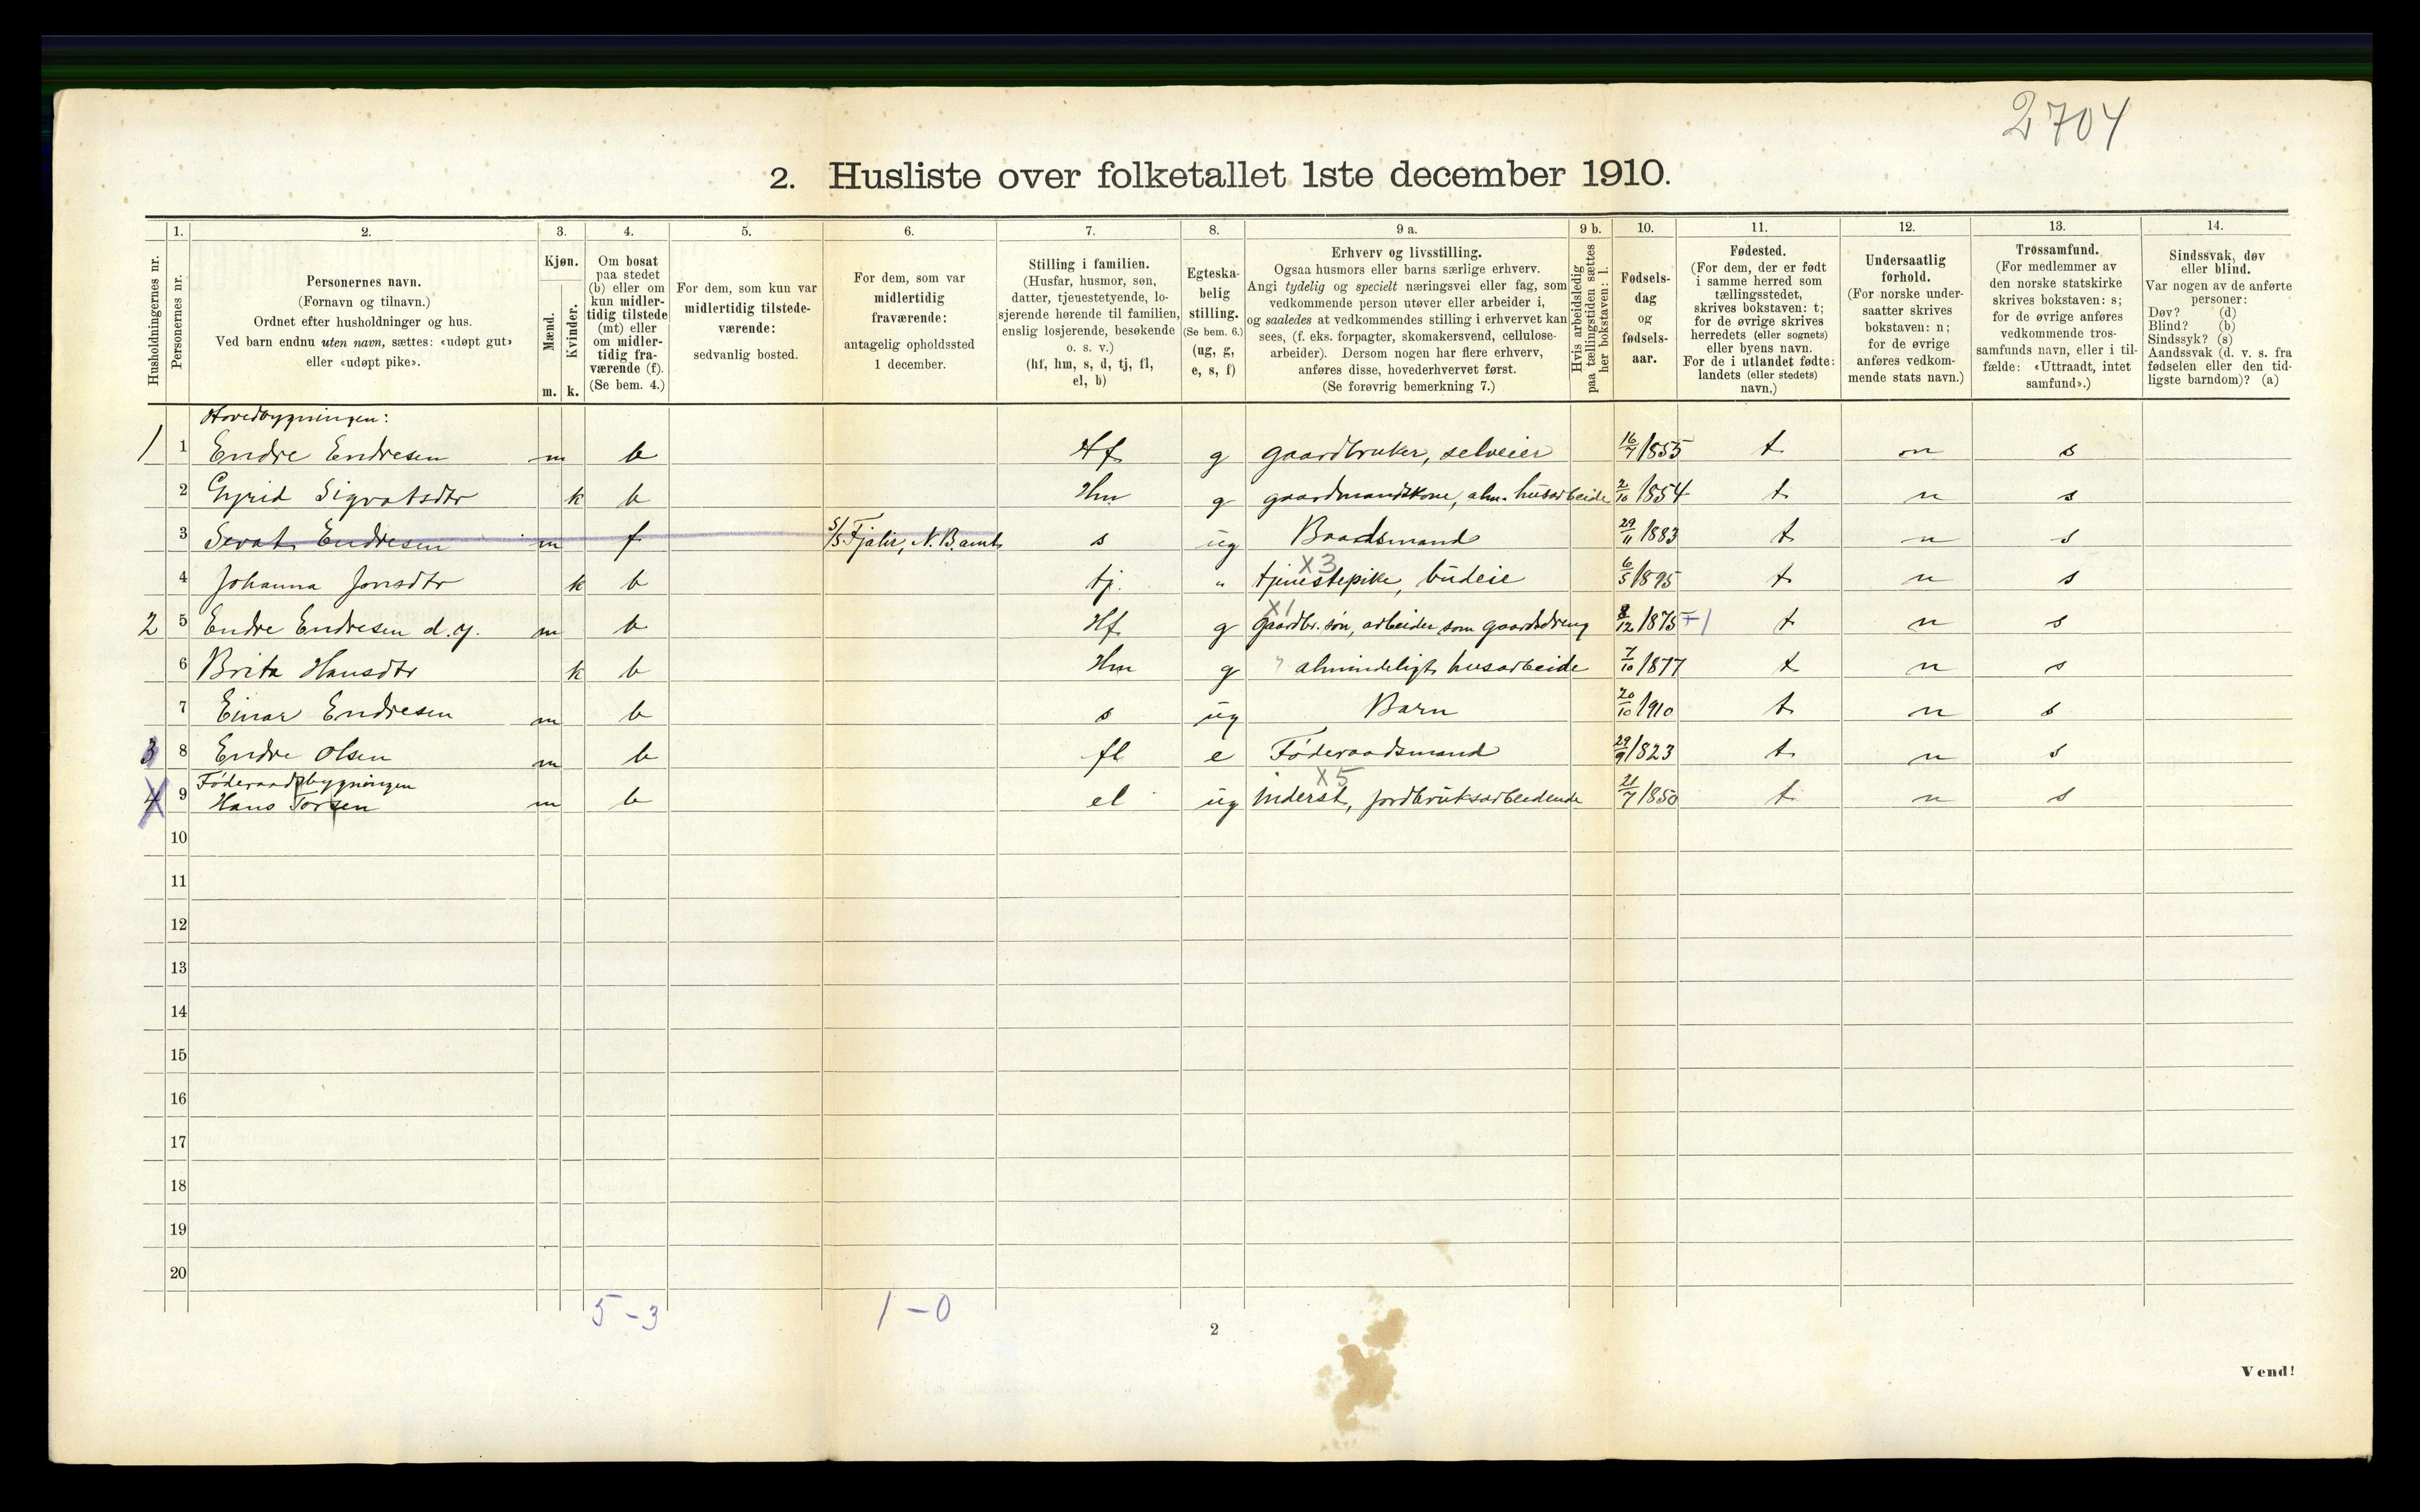 2704
2. Husliste over folketallet 1ste december 1910.
1. 2. 3. 4. 5. 6. 7. 8. 9 a. 9 b. 10. 11. 12. 13. 14.
Husholdningernes nr.
Personernes nr.
Personernes navn.
(Fornavn og tilnavn.)
Ordnet efter husholdninger og hus.
Ved barn endnu uten navn, sættes: «udøpt gut»
eller «udøpt pike».
Kjøn.
Mænd.
Kvinder.
m. k.
Om bosat
paa stedet
(b) eller om
kun midler-
tidig tilstede
(mt) eller
om midler-
tidig fra-
værende (f).
(Se bem. 4.)
For dem, som kun var
midlertidig tilstede-
værende:
sedvanlig bosted.
For dem, som var
midlertidig
fraværende:
antagelig opholdssted
1 december.
Stilling i familien.
(Husfar, husmor, søn,
datter, tjenestetyende, lo-
sjerende hørende til familien,
enslig losjerende, besøkende
o. s. v.)
(hf, hm, s, d, tj, fl,
el, b)
Egteska-
belig
stilling.
(Se bem. 6.)
(ug, g,
e, s, f)
Erhverv og livsstilling.
Ogsaa husmors eller barns særlige erhverv.
Angi tydelig og specielt næringsvei eller fag, som
vedkommende person utøver eller arbeider i,
og saaledes at vedkommendes stilling i erhvervet kan
sees, (f. eks. forpagter, skomakersvend, cellulose-
arbeider). Dersom nogen har flere erhverv,
anføres disse, hovederhvervet først.
(Se forøvrig bemerkning 7.)
Hvis arbeidsledig
paa tællingstiden sættes
her bokstaven: l.
Fødsels-
dag
og
fødsels-
aar.
Fødested.
(For dem, der er født
i samme herred som
tællingsstedet,
skrives bokstaven: t;
for de øvrige skrives
herredets (eller sognets)
eller byens navn.
For de i utlandet fødte:
landets (eller stedets)
navn,)
Undersaatlig
forhold.
(For norske under-
saatter skrives
bokstaven: n;
for de øvrige
anføres vedkom-
mende stats navn.)
Trossamfund.
(For medlemmer av
den norske statskirke
skrives bokstaven: s;
for de øvrige anføres
vedkommende tros-
samfunds navn, eller i til-
fælde: «Uttraadt, intet
samfund».)
Sindssvak, døv
eller blind.
Var nogen av de anførte
personer:
Døv? (d)
Blind? (b)
Sindssyk? (s)
Aandssvak (d. v. s. fra
fødselen eller den tid-
ligste barndom)? (a)
Hovedbygningen:
1 1 Endre Endresen m b Hf g gaardbruker, selveier 16/7 1855 t n s
2 Gyrid Sigvatsdtr k b Hm g gaardmandskone, alm. husarbeide 2/10 1854 t n s
3 Sevat Endresen m f S/S Fjalir, N. B. amt s ug Baadsmand 29/11 1883 t n s
X3
4 Johanna Jonsdtr k b tj. " tjenestepike, budeie 6/5 1895 t n s
X1
2 5 Endre Endresen d. y. m b Hf g Gaardbr. søn, arbeider som gaardsdreng 8/12 1875 t n s
6 Brita Hansdtr k b Hm g " almindeligt husarbeide 7/10 1877 t n s
7 Einar Endresen m b s ug Barn 20/10 1910 t n s
3 8 Endre Olsen m b fl e Føderaadsmand 29/9 1823 t n s
Føderaadsbygningen
X5
4 9 Hans m b el ug Inderst, jordbruksarbeidende 21/7 1850 t n s
10
11
12
13
14
15
16
17
18
19
20
5-3 1-0
2
Vend!